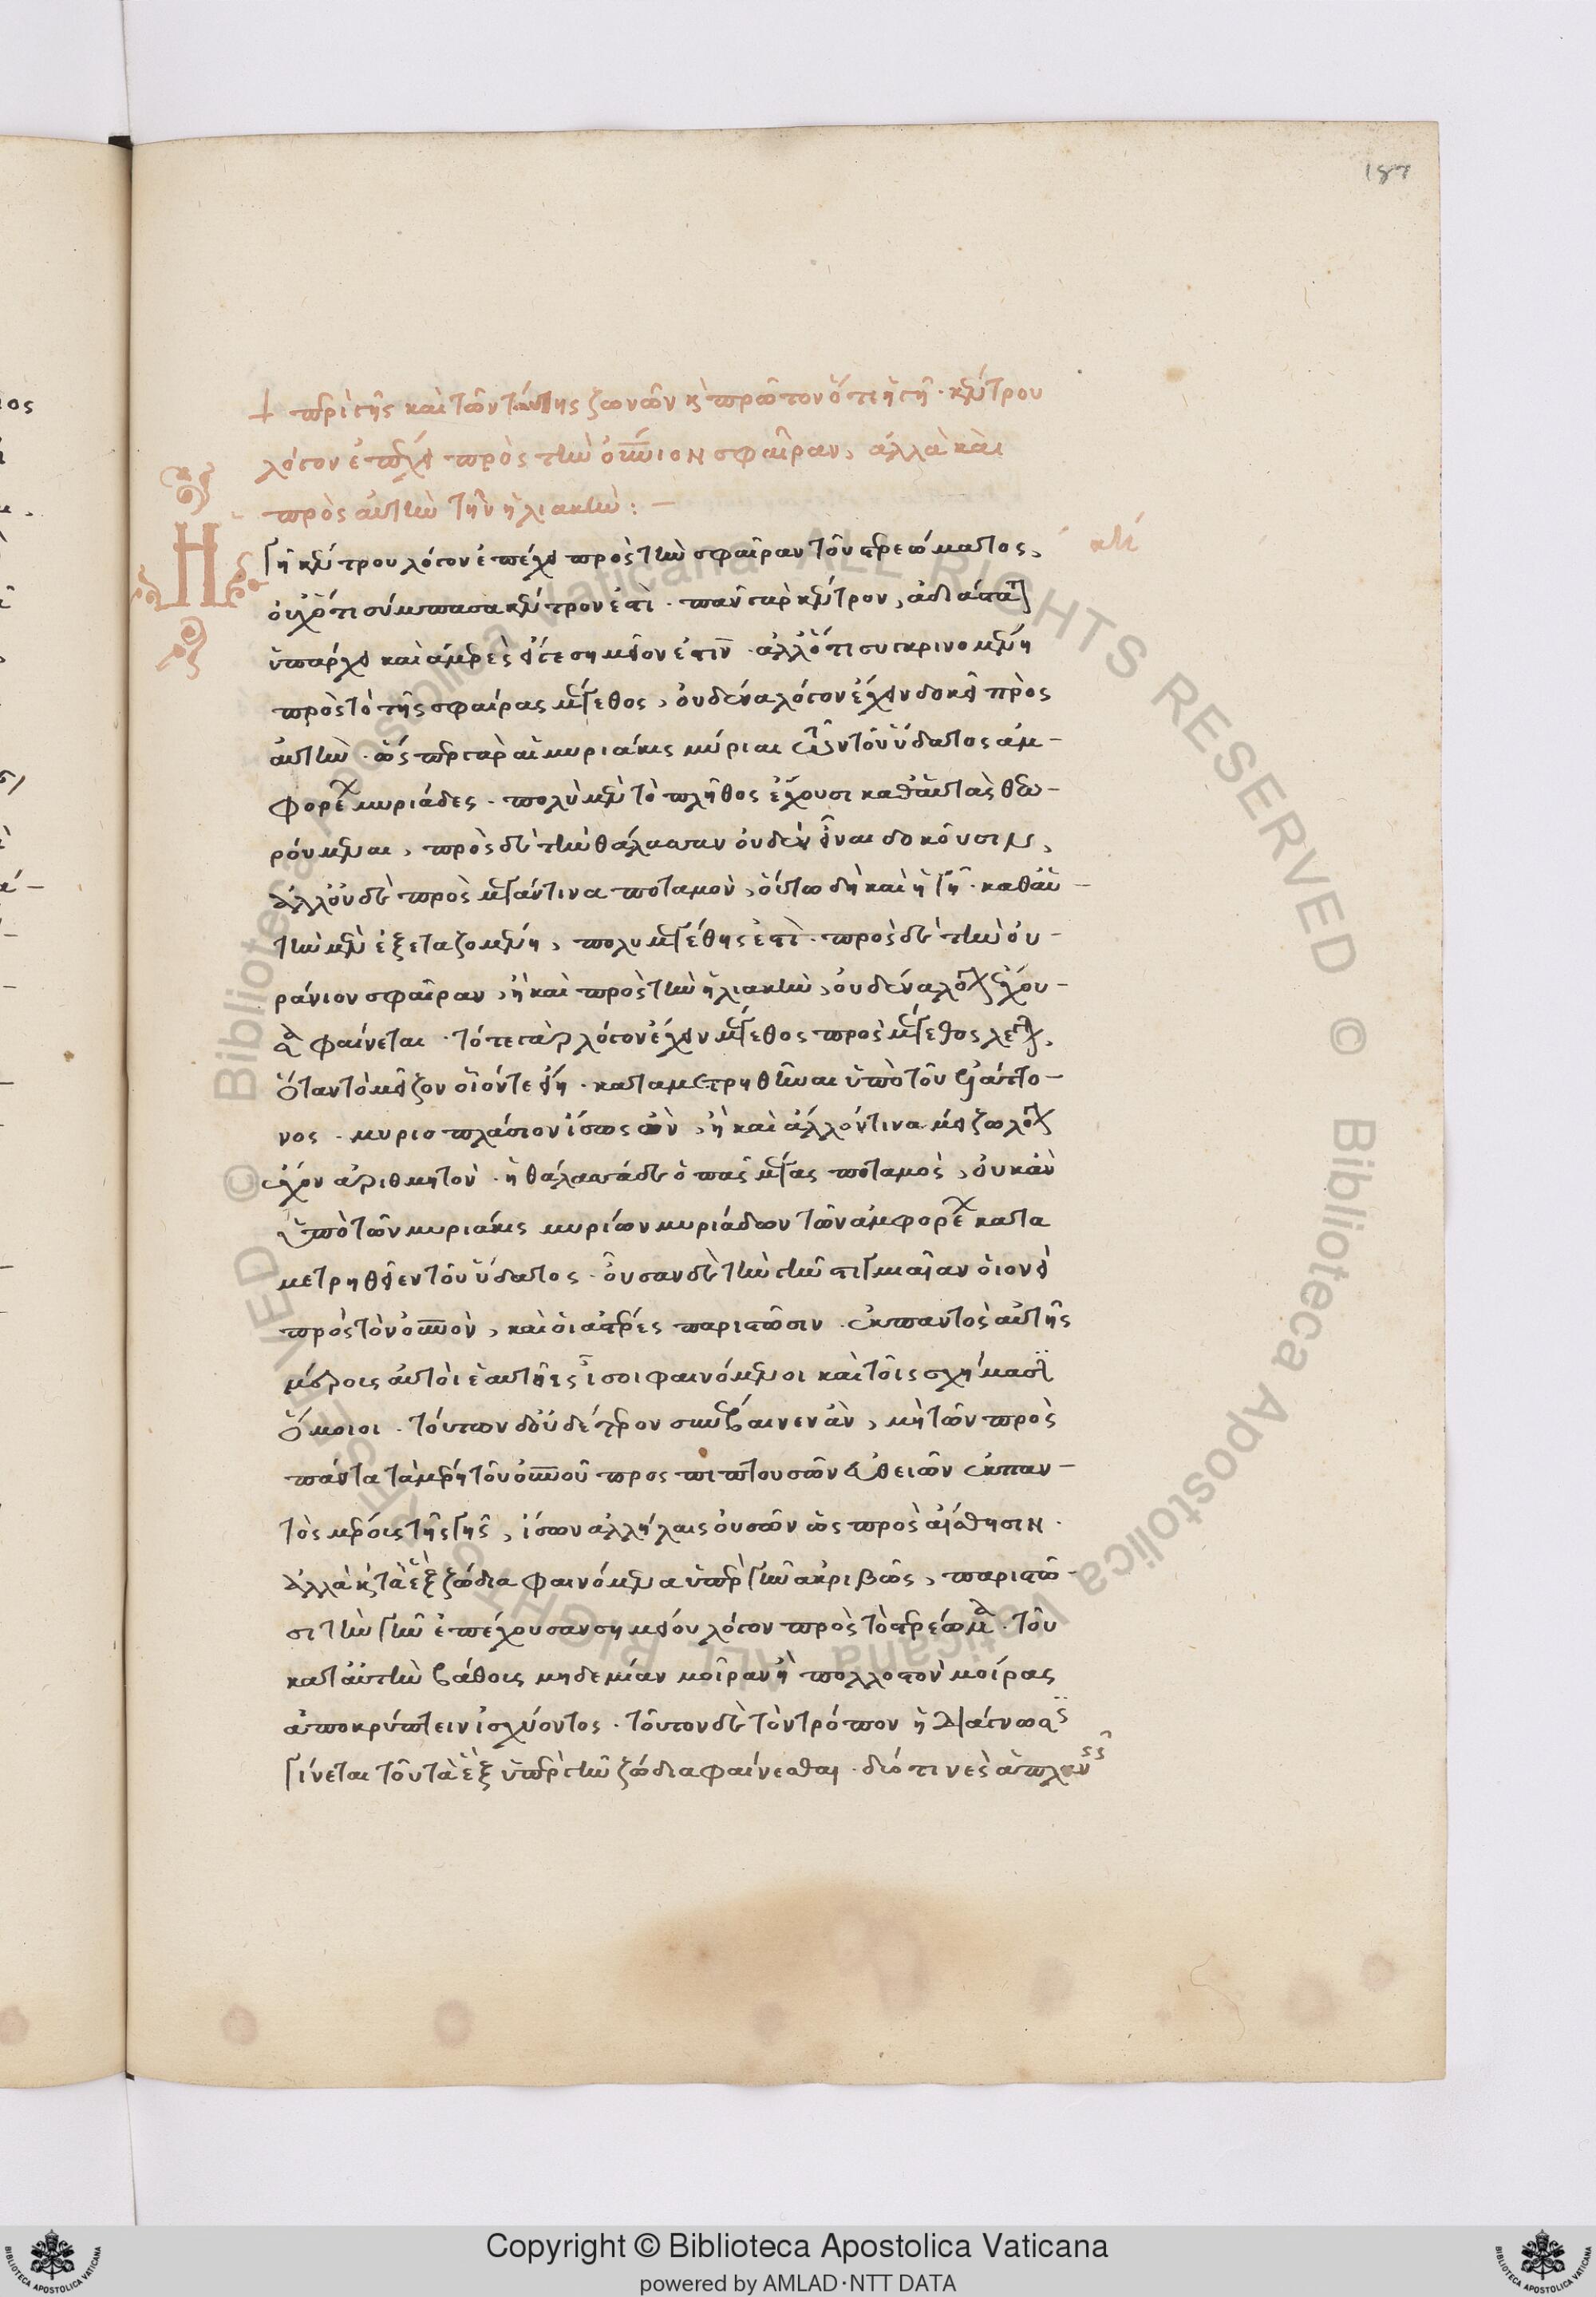 187
+ περὶ γῆς καὶ τῶν ταύτης ζωνῶν κ πρῶτον ὅτι ἡ γῆ · κέντρου
λόγον ἐπέχει πρὸς τὴν οὐνιον σφαῖραν, ἀλλὰ καὶ
πρὸς αὐτὴν τὴν ἡλιακὴν : —
Η γῆ κέντρου λόγον ἐπέχει πρὸς τὴν σφαῖραν τοῦ στερεώματος,
οὐχ ὅτι σύμπασα κέντρον ἐστὶ · πᾶν γὰρ κέντρον, ἀδιάστα
ὑπάρχει καὶ ἀμερὲς εἴγε σημεῖον ἐστιν · ἀλλ ὅτι συγκρινομένη
πρὸς τὸ τῆς σφαίρας μέγεθος, οὐδένα λόγον ἔχειν δοκεῖ πρὸς
αὐτὴν · ὥσπερ γὰρ αἱ μυριάκις μύριαι τοῦ ὕδατος ἀμ-
φορέ μυριάδες · πολὺ μὲν τὸ πλῆθος ἔχουσι καθ αὑτὰς θεω-
ρούμεναι, πρὸς δὲ τὴν θάλασσαν οὐδὲν εἶναι δοκοῦσιν,
ἀλλ οὐδὲ πρὸς μέγαν τινα ποταμὸν, οὕτω δὴ καὶ ἡ γῆ · καθ αὑ-
τὴν μὲν ἐξεταζομένη, πολυμεγέθης ἐστὶ · πρὸς δὲ τὴν οὐ-
ράνιον σφαῖραν, ἢ καὶ πρὸς τὴν ἡλιακὴν, οὐδένα λόγ ἔχου-
σα φαίνεται · τότε γὰρ λόγον ἔχειν μέγεθος πρὸς μέγεθος λέγ,
ὅταν τὸ μεῖζον οἷόν τε εἴη · καταμετρηθῆναι ὑπὸ τοῦ ἐλάττο-
νος · μυριοπλάσιον ἴσως ὂν, ἢ καὶ ἄλλόν τινα μείζω λόγ
ἔχον ἀριθμητὸν · ἡ θάλασσα δὲ ὁ πᾶς μέγας ποταμὸς, οὐκ ἂν
ὑπὸ τῶν μυριάκις μυρίων μυριάδων τῶν ἀμφορέ κατα
μετρηθεῖεν τοῦ ὕδατος · οὖσαν δὲ τὴν γῆν στιγμιαῖαν οἱονεὶ
πρὸς τὸν οὐνὸν, καὶ οἱ ἀστέρες παριστῶσιν · ἐκ παντὸς αὐτῆς
μέρους αὐτοὶ ἑαυτοῖς ἴσοι φαινόμενοι καὶ τοῖς σχήμασι
ὅμοιοι · τούτων δ οὐδέτερον συνέβαινεν ἂν, μὴ τῶν πρὸς
πάντα τὰ μέρη τοῦ οὐνοῦ προσπιπτουσῶν εὐθειῶν ἐκ παν-
τὸς μέρους τῆς γῆς, ἴσων ἀλλήλαις οὐσῶν ὡς πρὸς αἴσθησιν ·
ἀλλὰ κ τὰ ἓξ ζώδια φαινόμενα ὑπὲρ γῆν ἀκριβῶς, παριστῶ-
σι τὴν γῆν ἐπέχουσαν σημείου λόγον πρὸς τὸ στερέωμα · τοῦ
κατ αὐτὴν βάθους μηδεμίαν μοῖραν ἢ πολλοστὸν μοίρας
ἀποκρύπτειν ἰσχύοντος · τοῦτον δὲ τὸν τρόπον ἡ διάγνωσις
γίνεται τοῦ τὰ ἓξ ὑπὲρ γῆν ζώδια φαίνεσθαι · δύο τινὲς ἀπλαν
Copyright © Biblioteca Apostolica Vaticana
powered by AMLAD·NTT DATA